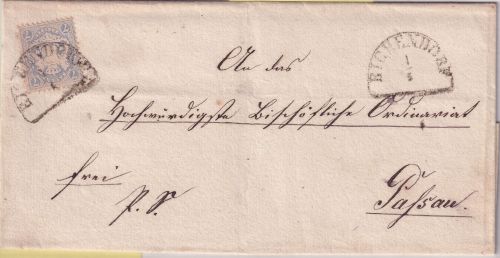 EICHENDORF
1
5
An das
Hochwürdigste Bischöfliche Ordinariat
frei
P. S.
Passau.